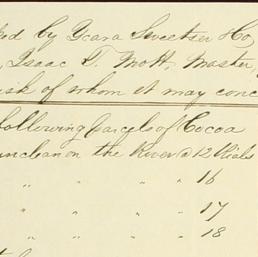 ed by Ycara Sweetser Ho
Isaac T. Mott, Master,
isk of whom it may conc
following parcels of Cocoa
on the River @ 12 Rials
" " " " 16
" " " " 17
" " " " 18